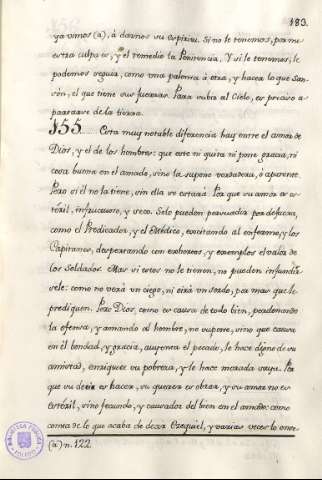 183.
ya vimos (a), á darnos su espiritu. Si no le tenemos, por nu-
estra culpa es, y el remedio la Penitencia. Y si le tenemos, le
podemos seguir, como una paloma á otra, y hacer lo que San-
són, el que tiene sus fuerzas. Para subir al Cielo, es preciso a-
partarse de la tierra.
155. Esta muy notable diferencia hay entre el amor de
Dios, y el de los hombres: que este ni quita ni pone gracia, ni
cosa buena en el amado, sino la supone verdadera, ó aparente.
Pero si el no la tiene, sin ella se estará. Por que su amor es es-
téril, infructuoso, y seco. Solo pueden persuadir por defuera,
como el Predicador, y el Médico, excitando al enfermo, y los
Capitanes, despertando con exhortos, y exemplos el valor de
los Soldados. Mas si estos no le tienen, no pueden infundir-
sele: como no verá un ciego, ni oirá un sordo, por mas que le
prediquen. Pero Dios, como es causa de todo bien, perdonando
la ofensa, y amando al hombre, no supone, sino que causa
en él bondad, y gracia, ausenta el pecado, le hace digno de su
amistad, enriquece su pobreza, y le hace morada suya. Por
que su decir es hacer, su querer es obrar, y su amor no es
estéril, sino fecundo, y causador del bien en el amado: como
consta de lo que acaba de decir Ezequiel, y varias veces lo ense-
(a) n. 122
BIBLIOTECA PUBLICA
TOLEDO